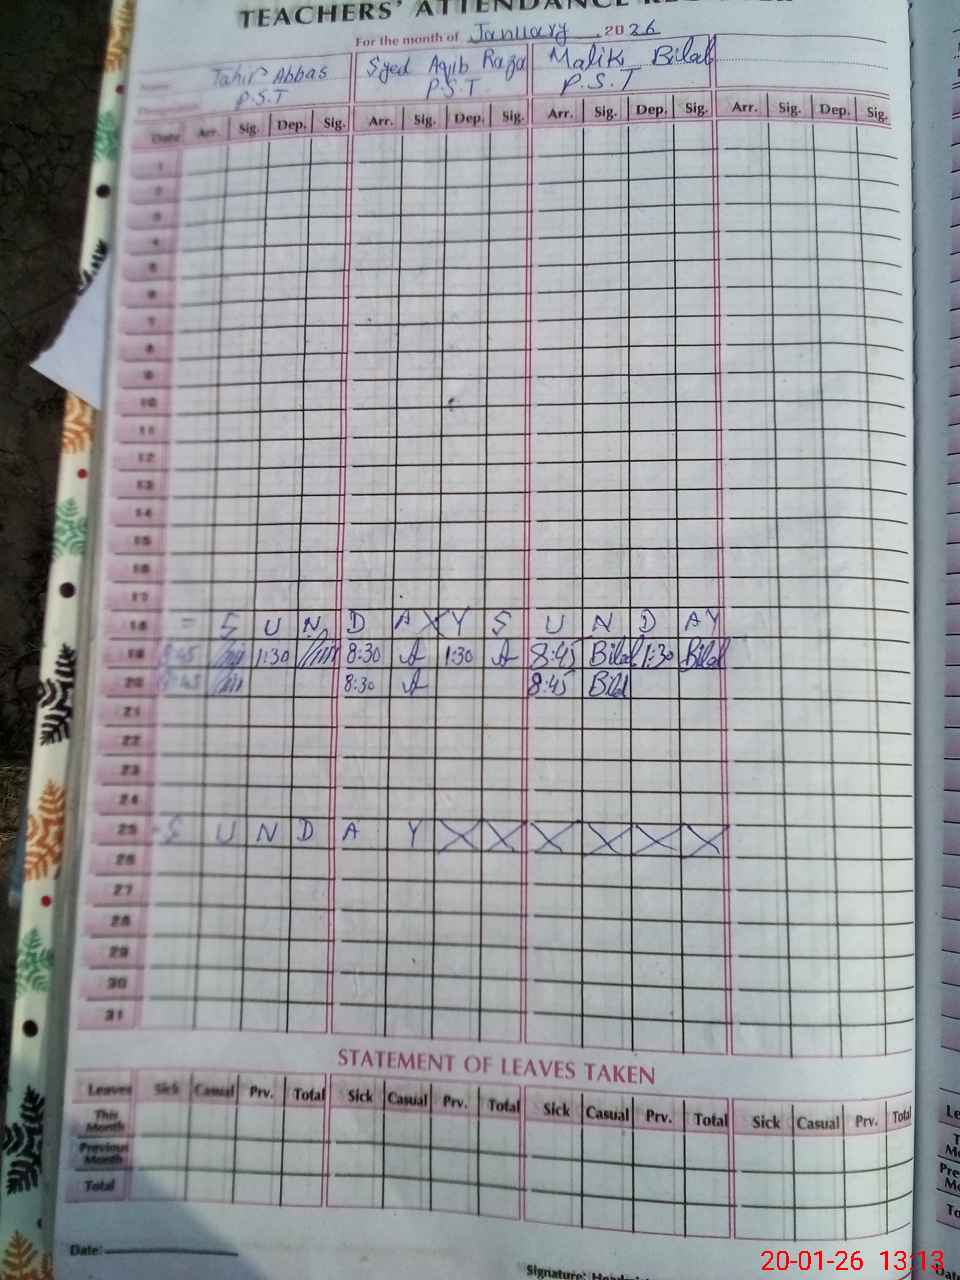 TEACHERS' ATTENDANCE
For the month of January 2026
Name Tahir Abbas Syed Aqib Raza Malik Bilal
P.S.T P.S.T P.S.T
Date Arr. Sig. Dep. Sig. Arr. Sig. Dep. Sig. Arr. Sig. Dep. Sig. Arr. Sig. Dep. Sig.
1
2
3
4
5
6
7
8
9
10
11
12
13
14
15
16
17
18 S U N D A Y S U N D A Y
19 8:45 1:30 8:30 A 1:30 A 8:45 Bilal 1:30 Bilal
20 8:45 8:30 A 8:45 Bilal
21
22
23
24
25 S U N D A Y
26
27
28
29
30
31
STATEMENT OF LEAVES TAKEN
Leaves Sick Casual Prv. Total Sick Casual Prv. Total Sick Casual Prv. Total Sick Casual Prv. Total
This Month
Previous Month
Total
Date:
Signature:
20-01-26 13:13